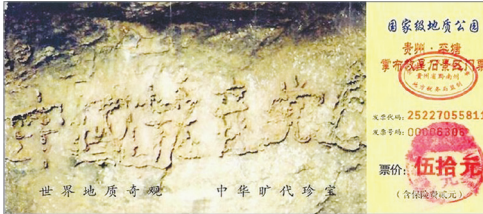 中國共产党亡
世界地质奇观 中华旷代珍宝
国家级地质公园
贵州·平塘
掌布救星石景区门票
贵州省黔南州
发票代码: 25227055811
发票号码: 00006306
票价: 伍拾元
(含保险费贰元)